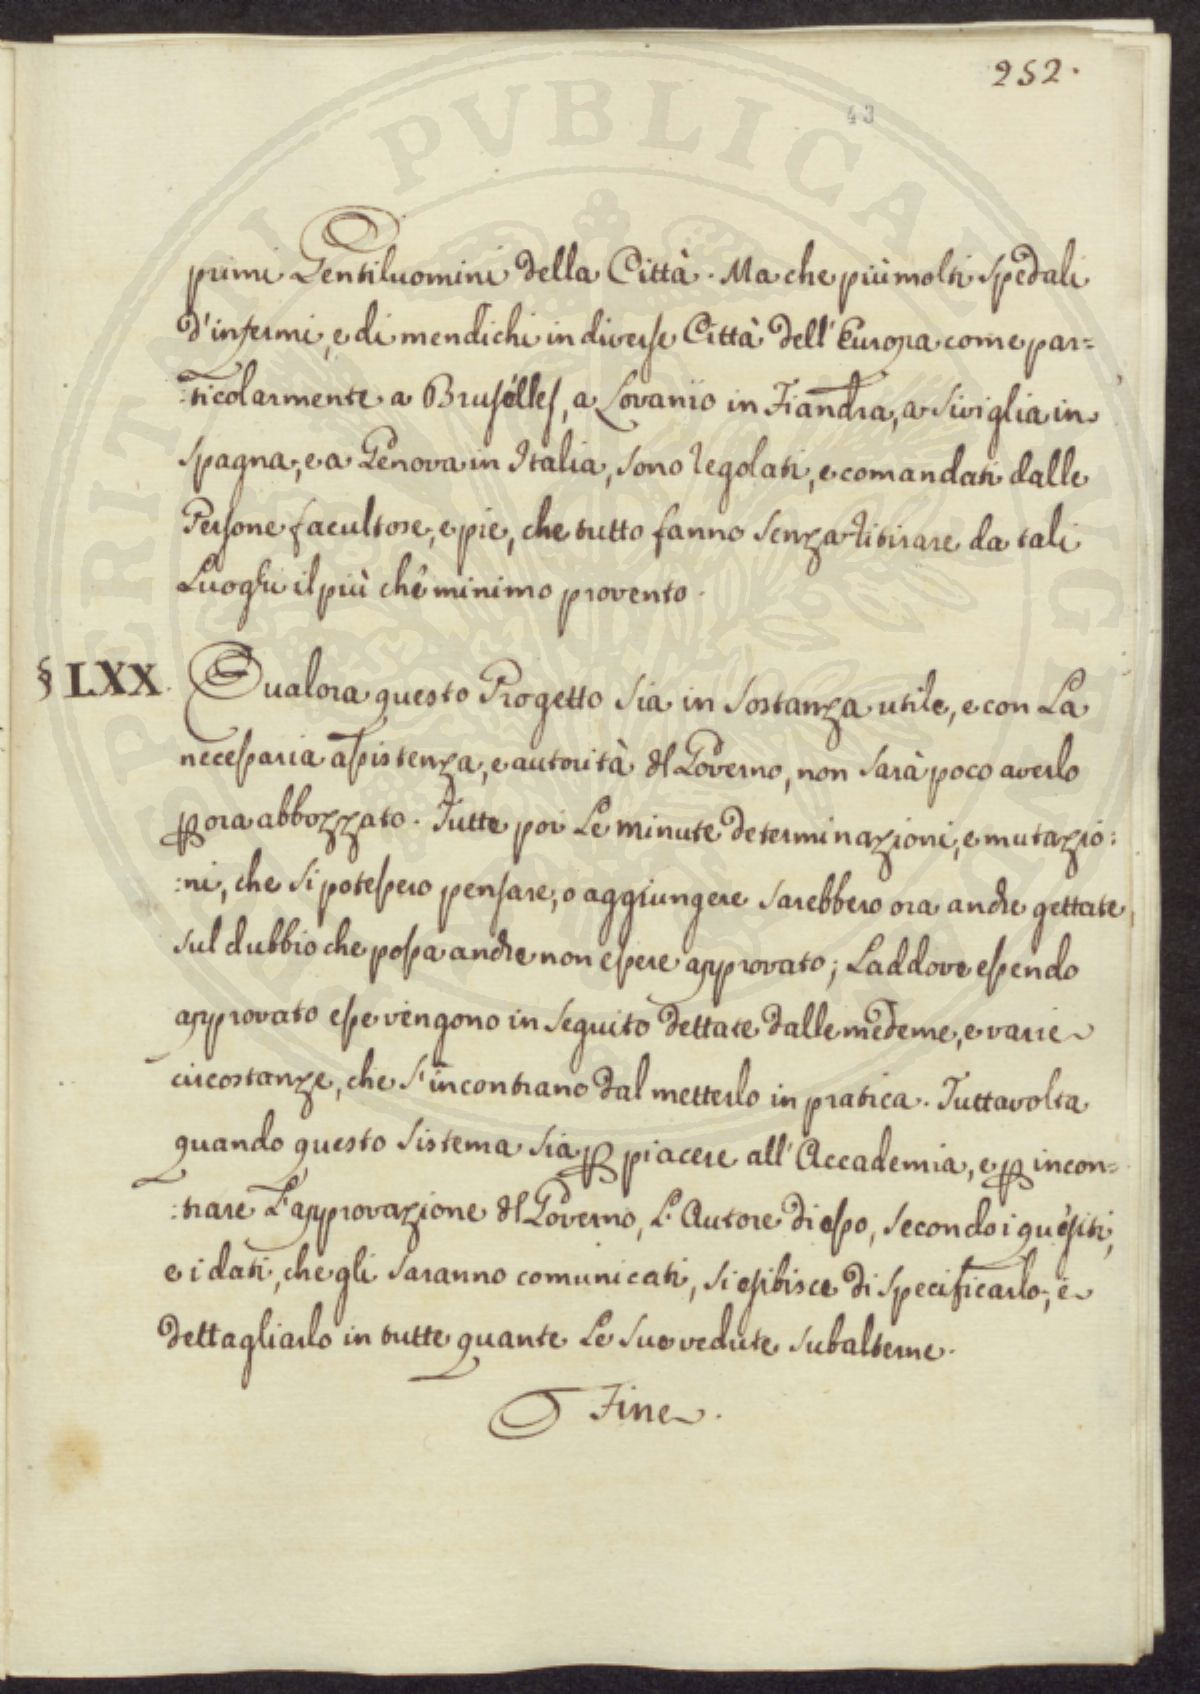 252.
43
primi Gentiluomini della Città. Ma che più molti Spedali
d'infermi, e di mendichi in diverse Città dell'Europa come par=
:ticolarmente a Brusélles, a Lovanio in Fiandra, a Siviglia in
Spagna, e a Genova in Italia, sono regolati, e comandati dalle
Persone facultose, e pie, che tutto fanno senza ritirare da tali
Luoghi il più chè minimo provento.
§ LXX. Qualora questo Progetto sia in sostanza utile, e con La
necessaria assistenza, e autorità dl Governo, non sarà poco averlo
p ora abbozzato. Tutte poi Le minute determinazioni, e mutazio:
:ni, che si potessero pensare, o aggiungere sarebbero ora anche gettate
sul dubbio che possa anche non essere approvato; Laddove essendo
approvato esse vengono in seguito dettate dalle medeme, e varie
circostanze, che s'incontrano dal metterlo in pratica. Tuttavolta
quando questo sistema sia p piacere all'Accademia, e p incon=
:trare L'approvazione dl Governo, L'Autore di esso, secondo i quesiti,
e i dati, che gli saranno comunicati, si esibisce di specificarlo, e
dettagliarlo in tutte quante Le sue vedute subalterne.
Fine.
PERITI PVBLICAE